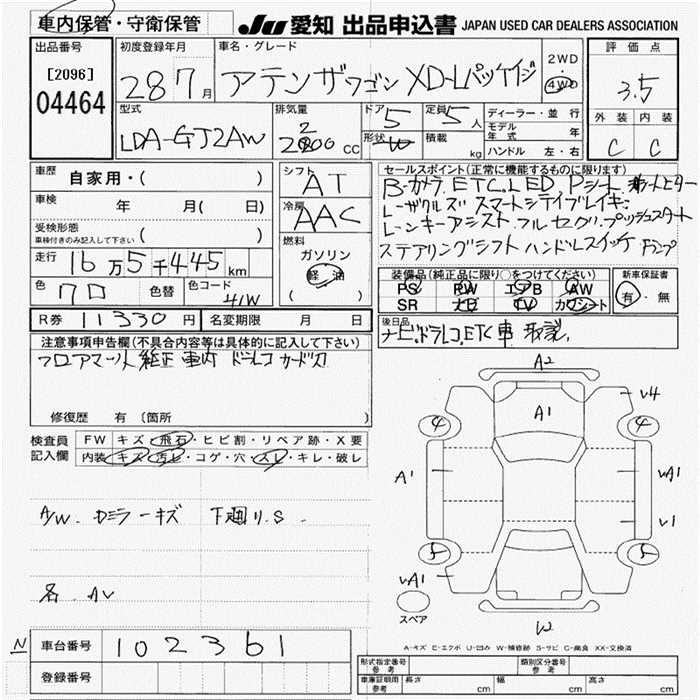 車内保管・守衛保管 JU 愛知 出品申込書 JAPAN USED CAR DEALERS ASSOCIATION
出品番号
[2096]
04464
初度登録年月
28 7月
車名・グレード
アテンザワゴン XD-Lパッケイジ
2WD
・
4WD
評価点
3.5
外装 内装
C C
型式
LDA-GJ2AW
排気量
2200 CC
ドア
5
形状 W
定員
5人
積載 kg
ディーラー・並行
モデル年式 年
ハンドル 左・右
車歴 自家用・( )
車検 年 月( 日)
受検形態
車検付きのみ記入して下さい ( )
走行 16万5千445km
色 クロ 色替 色コード 41W
シフト AT
冷房 AAC
燃料
ガソリン
軽油
( )
セールスポイント(正常に機能するものに限ります)
Bカメラ ETC LED Pシート シートヒーター
レーザクルズ スマートシティブレイキ
レーンキーアシスト フルセグ プッシュスタート
ステアリングシフト ハンドルスイッチ
装備品(純正品に限り○をつけてください)
PS PW エアB AW
SR ナビ TV カワシート
新車保証書
有・無
R券 11330円 名変期限 月 日
後日品
ナビ、ドラレコ、ETC 車 取説、
注意事項申告欄(不具合内容等は具体的に記入して下さい)
フロアマット 純正 車内 ドラレコ カード欠
修復歴 有 〔箇所
検査員記入欄
FW キズ・飛石・ヒビ割・リペア跡・X要
内装 キズ・汚レ・コゲ・穴・スレ・キレ・破レ
A/W. カミラーキズ 下廻リ.S
名. AV
A2
A1
V4
4 4
A' WA1
V1
5 5
WA1
スペア
W2
A-キズ E-エクボ U-凹み W-補修跡 S-サビ C-腐食 XX-交換済
N 車台番号 102361
登録番号
形式指定番号 参考
類別区分番号 参考
車庫証明用 参考 長さ cm 幅 cm 高さ cm